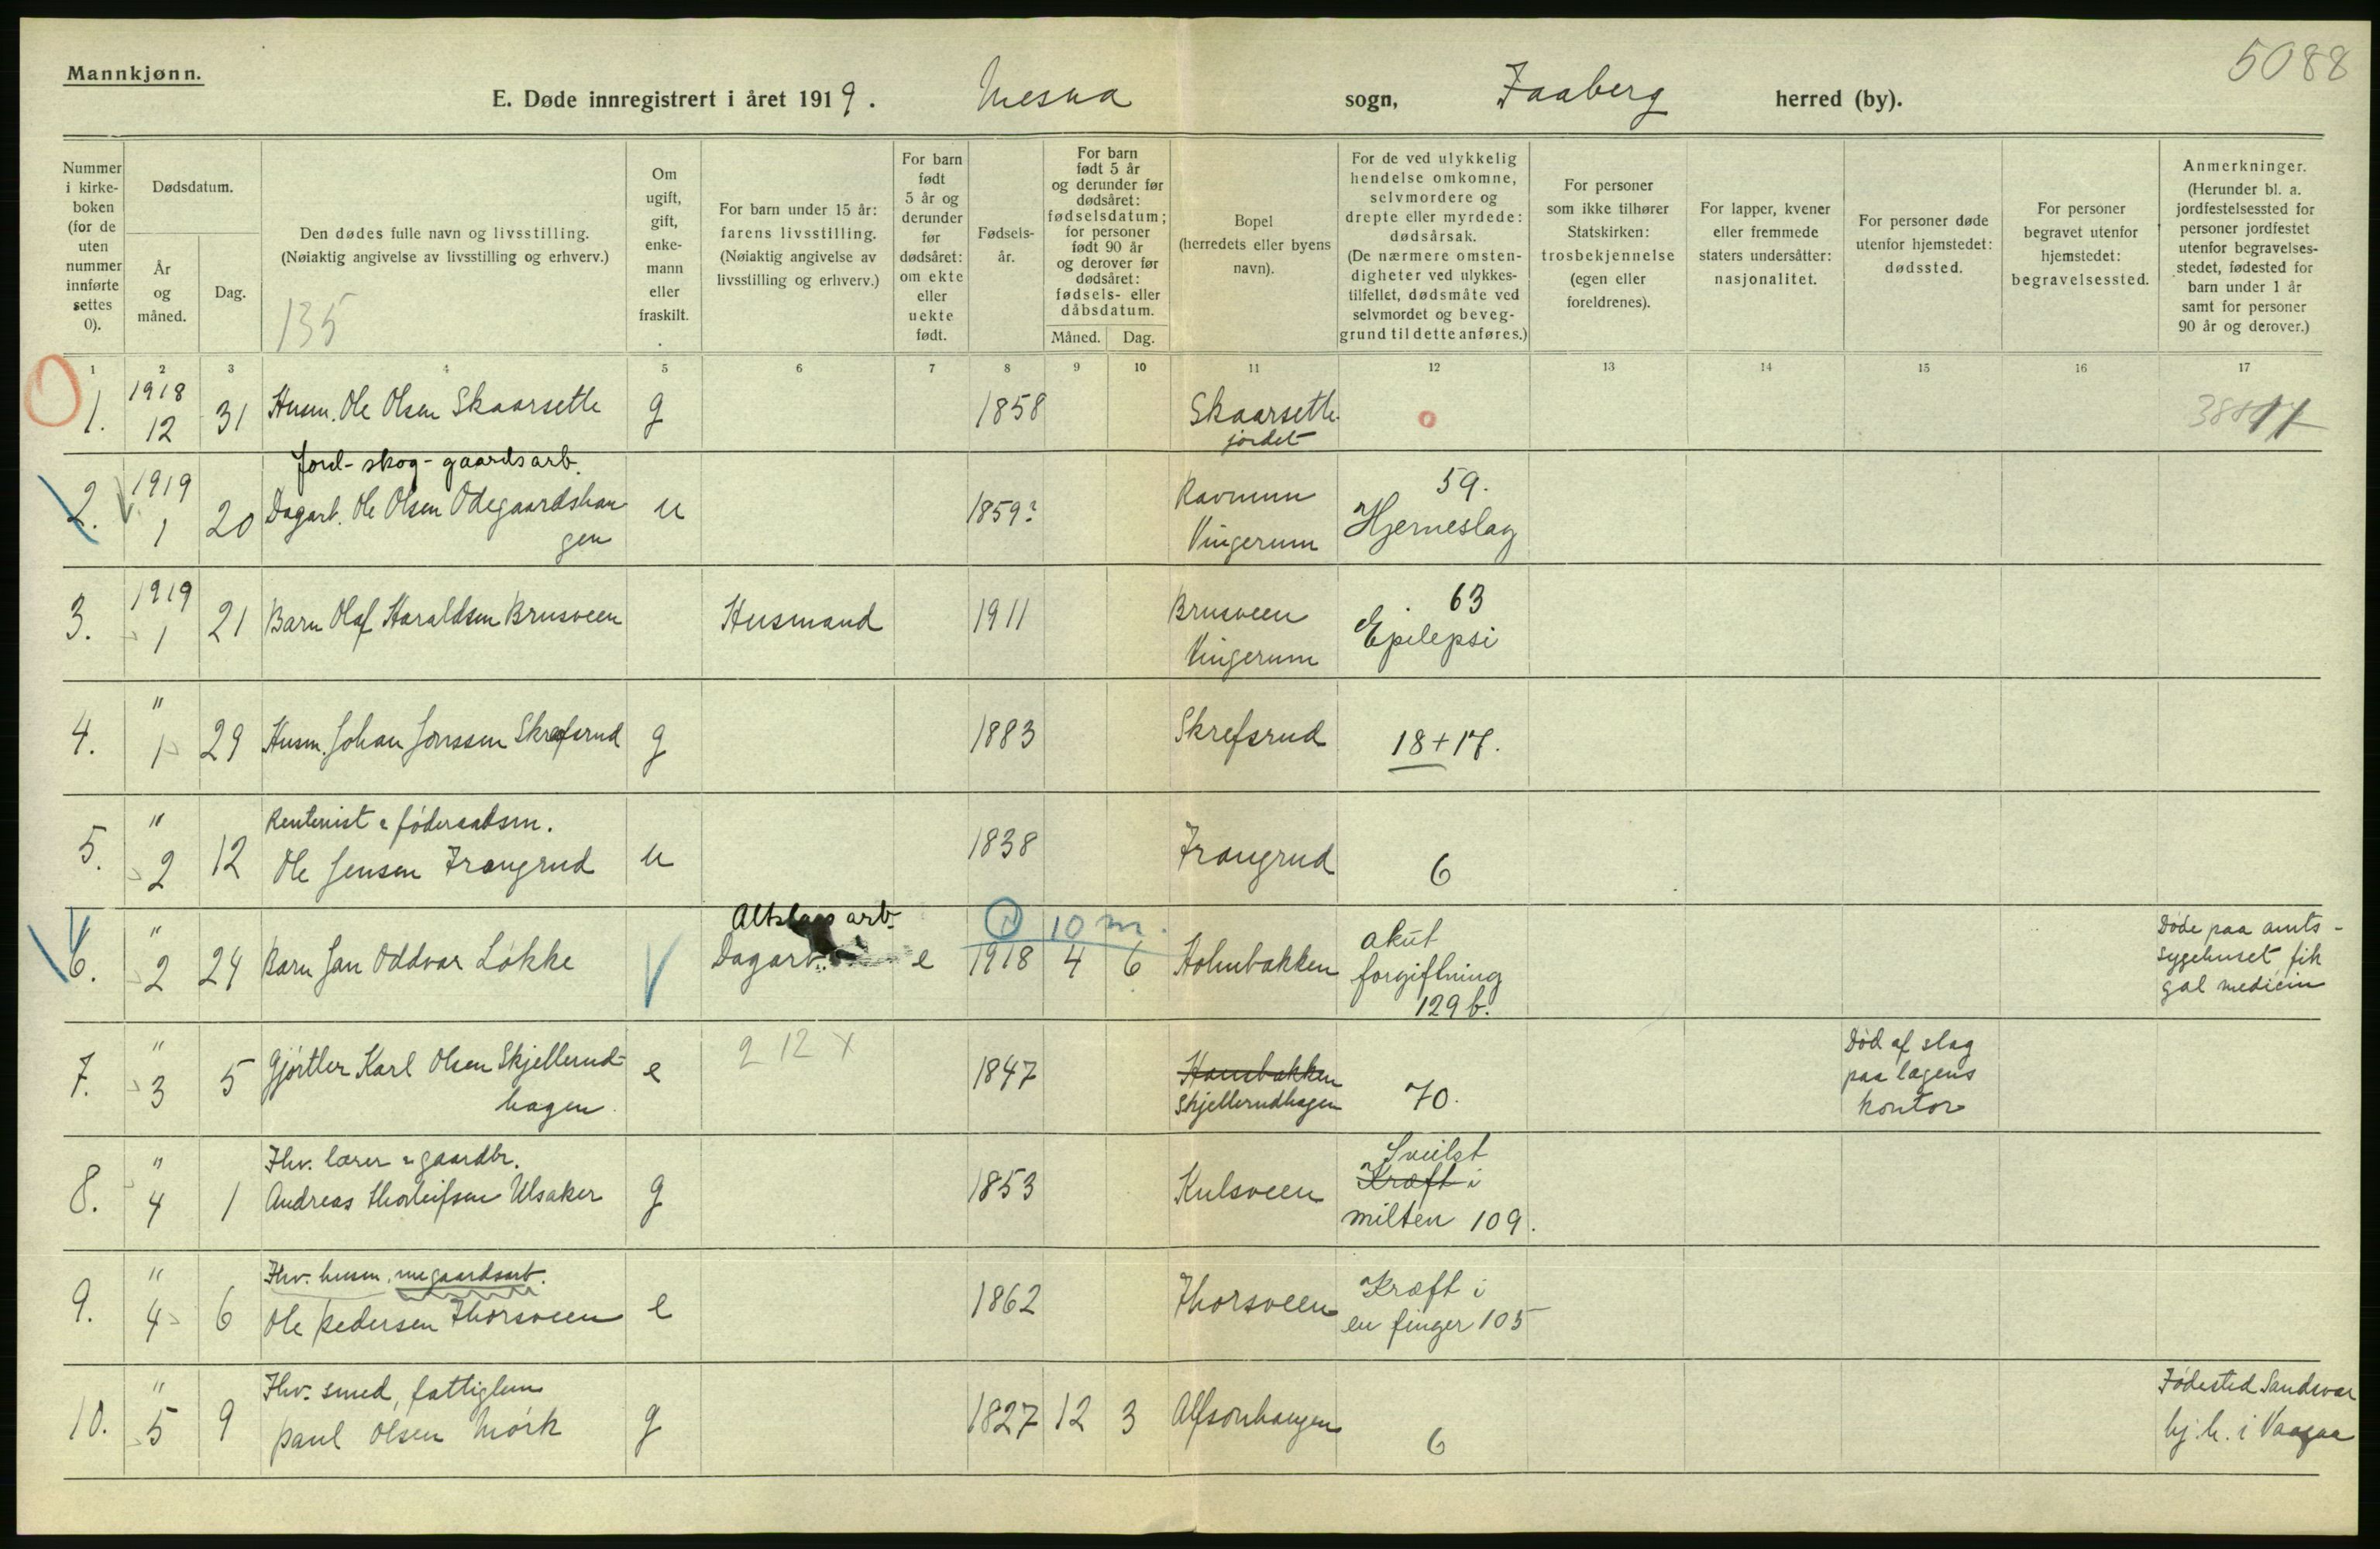 5088
Mannkjønn.
E. Døde innregistrert i året 1919. Mesna sogn, Faaberg herred (by).
Nummer i kirke-boken (for de uten nummer innførte settes 0).
Dødsdatum.
År og måned.
Dag.
Den dødes fulle navn og livsstilling.
(Nøiaktig angivelse av livsstilling og erhverv.)
135
Om ugift, gift, enke-mann eller fraskilt.
For barn under 15 år: farens livsstilling. (Nøiaktig angivelse av livsstilling og erhverv.)
For barn født 5 år og derunder før dødsåret: om ekte eller uekte født.
Fødsels-år.
For barn født 5 år og derunder før dødsåret: fødselsdatum; for personer født 90 år og derover før dødsåret: fødsels- eller dåbsdatum.
Måned. Dag.
Bopel (herredets eller byens navn).
For de ved ulykkelig hendelse omkomne, selvmordere og drepte eller myrdede: dødsårsak. (De nærmere omsten-digheter ved ulykkes-tilfellet, dødsmåte ved selvmordet og beveg-grund til dette anføres.)
For personer som ikke tilhører Statskirken: trosbekjennelse (egen eller foreldrenes).
For lapper, kvener eller fremmede staters undersåtter: nasjonalitet.
For personer døde utenfor hjemstedet: dødssted.
For personer begravet utenfor hjemstedet: begravelsessted.
Anmerkninger. (Herunder bl. a. jordfestelsessted for personer jordfestet utenfor begravelses-stedet, fødested for barn under 1 år samt for personer 90 år og derover.)
1 2 3 4 5 6 7 8 9 10 11 12 13 14 15 16 17
1. 1918 12 31 Husm. Ole Olsen Skaarsette g 1858 Skaarsette-
jordet
Jord- skog- gaardsarb.
2. 1919 1 20 Dagarb. Ole Olsen Ödegaardshau
gen u 1859? Ravnum
Vingerum
59.
Hjerneslag
3. 1919 1 21 Barn Olaf Haraldsen Brusveen Husmand 1911 Brusveen
Vingerum
63
Epilepsi
4. " 1 29 Husm. Johan Jonssen Skrefsrud g 1883 Skrefsrud 18+17.
5. " 2 12 Rentenist & föderaadsm.
Ole Jensen Frangrud u 1838 Frangrud 6
6. " 2 24 Barn Jan Oddvar Løkke
arb.
Dagarb. e
10 m.
1918 4 6 Holmbakken
akut
forgiftning
129 b.
Døde paa amts-
sygehuset fik
gal medicin
7. " 3 5 Gjørtler Karl Olsen Skjellerud-
hagen e 2 12 X 1847 Hansbakken
Skjellerudhagen 70.
Död af slag
paa lægens
kontor
8. " 4 1 Fhv. lærer & gaardbr.
Andreas Thorleifsen Ulsaker g 1853 Kulsveen
Svulst
Kræft i
milten 109.
9. " 4 6 Fhv. husm. gaardsarb.
Ole Pedersen Thorsveen e 1862 Thorsveen
Kræft i
en finger 105
10. " 5 9 Fhv. smed, fattiglem
Paul Olsen Mörk g 1827 12 3 Alfsonhaugen 6
Födested Sandsvær
hj. h. i Vaagaa